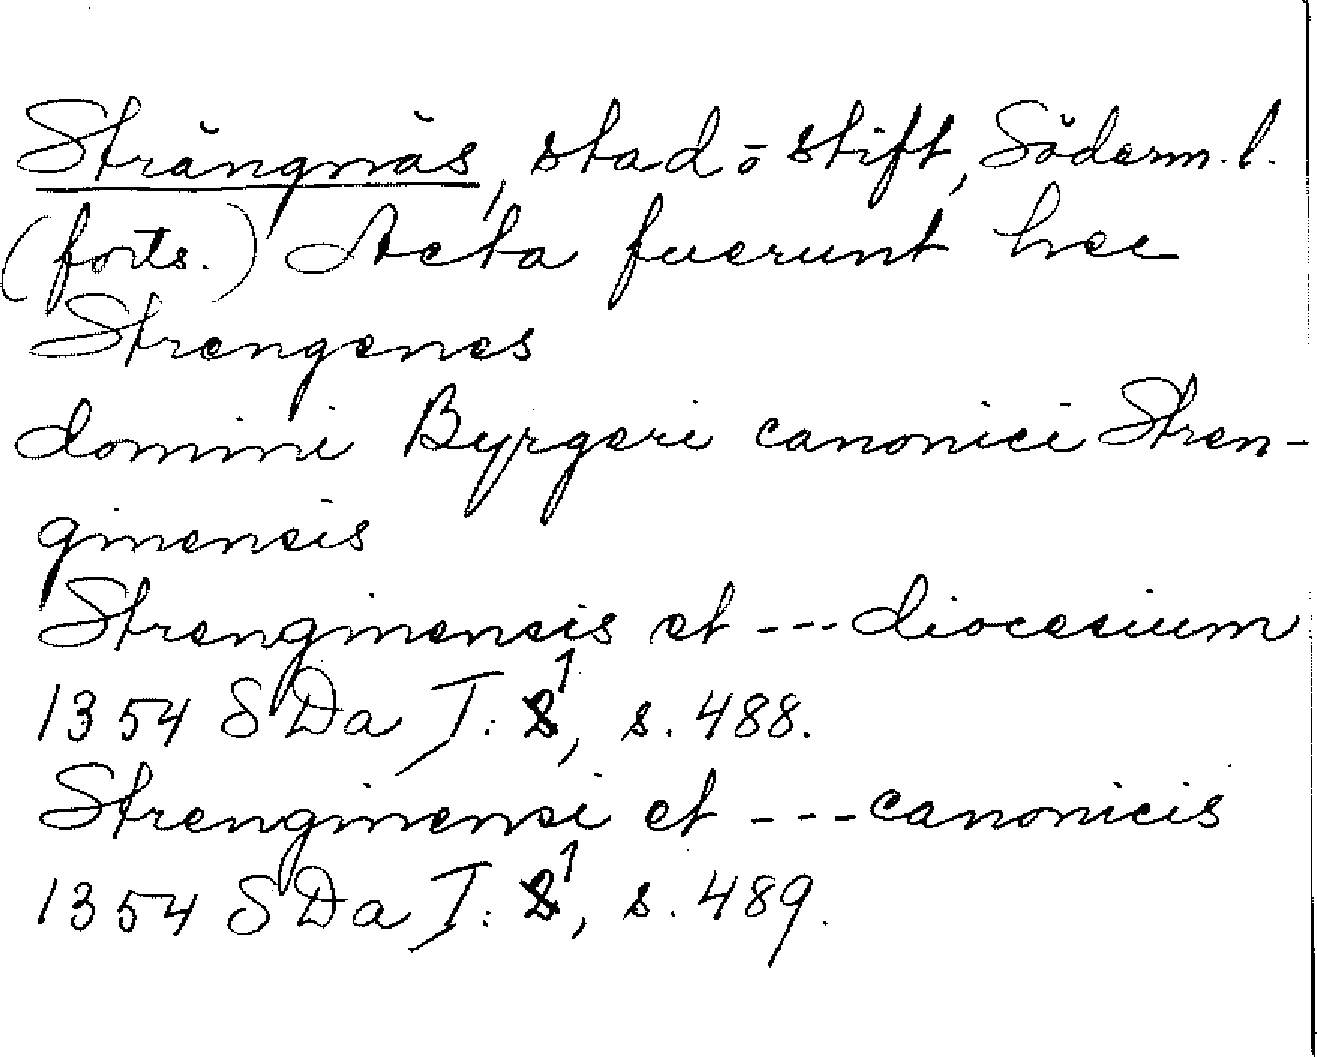 Strängnäs, stad o stift, Söderm. l.
(forts.) Acta fuerunt hec
Strengenes
domini Byrgeri canonici Stren-
ginensis
Strenginensis et --- diocesium
1354 SDa I: 1, s. 488.
Strenginensi et --- canonicis
1354 SDa I: 1, s. 489.